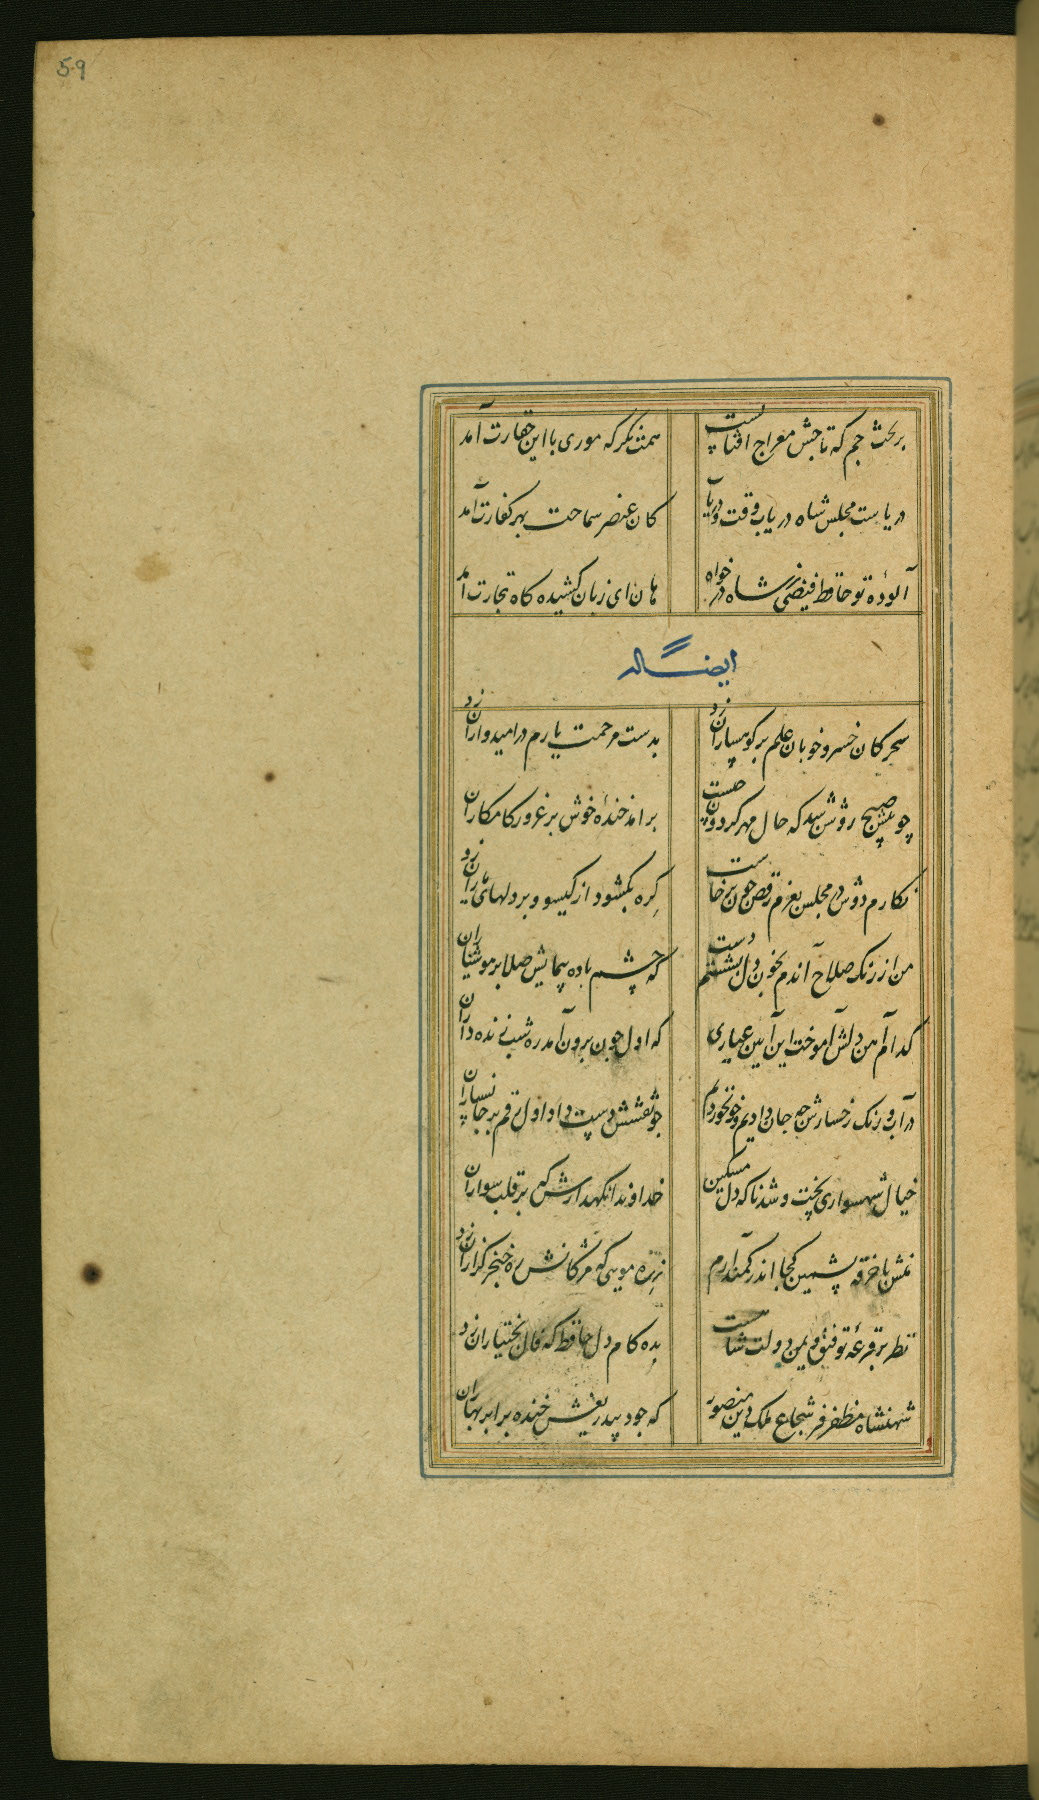 59
برتخت جم که تاجش معراج افتابست
همت نکر که موری با این حقارت آمد
دریاست مجلس شاه دریاب وقت و دریاب
کان عنصر سماحت بهر تجارت آمد
آلودهٔ تو حافظ فیضی ز شاه در خواه
ایضاً له
سحر کان خسرو خوبان علم بر کوهساران زد
بدست مرحمت یارم در امیدواران زد
چو پیش صبح روشن شد که حال مهر کردون چیست
برامد خندهٔ خوش بر غرور کامکاران
نکارم دوش در مجلس بعزم رقص چون برخاست
کره بکشود از کیسو و بر دلهای یاران زد
من از رنک صلاح آندم بخون دل بشستم دست
که چشم باده پیمایش صلا بر هوشیاران
کدام آهن دلش آموخت این آیین عیاری
که اول چون برون آمد ره شب زنده داران
در آب و رنک رخسارش چه جان دادیم و خون خوردیم
چو نقشش دست داد اول رقم بر جانسپاران
خیال شهسواری پخت و شد ناکه دل مسکین
خداوندا نکهدارش که بر قلب سواران
منش با خرقه پشمین کجا اندر کمند آرم
زره مویی که مژکانش ره خنجر کزاران زد
نظر بر قرعهٔ توفیق و یمن دولت شاهست
بده کام دل حافظ که فال بختیاران زد
شهنشاه مظفر فر شجاع ملک و دین منصور
که جود بیدریغش خنده بر ابر بهاران